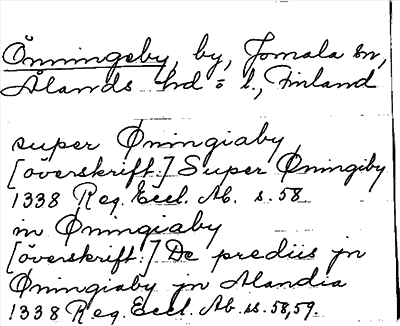 Önningeby, by, Jomala sn,
Ålands hd o l., Finland
super Øningiaby
[överskrift:] Super Øningiby
1338 Reg. Eccl. Ab. s. 58
in Øningiaby
[överskrift:] De prediis jn
Øningiaby jn Alandia
1338 Reg. Eccl. Ab. ss. 58, 59.